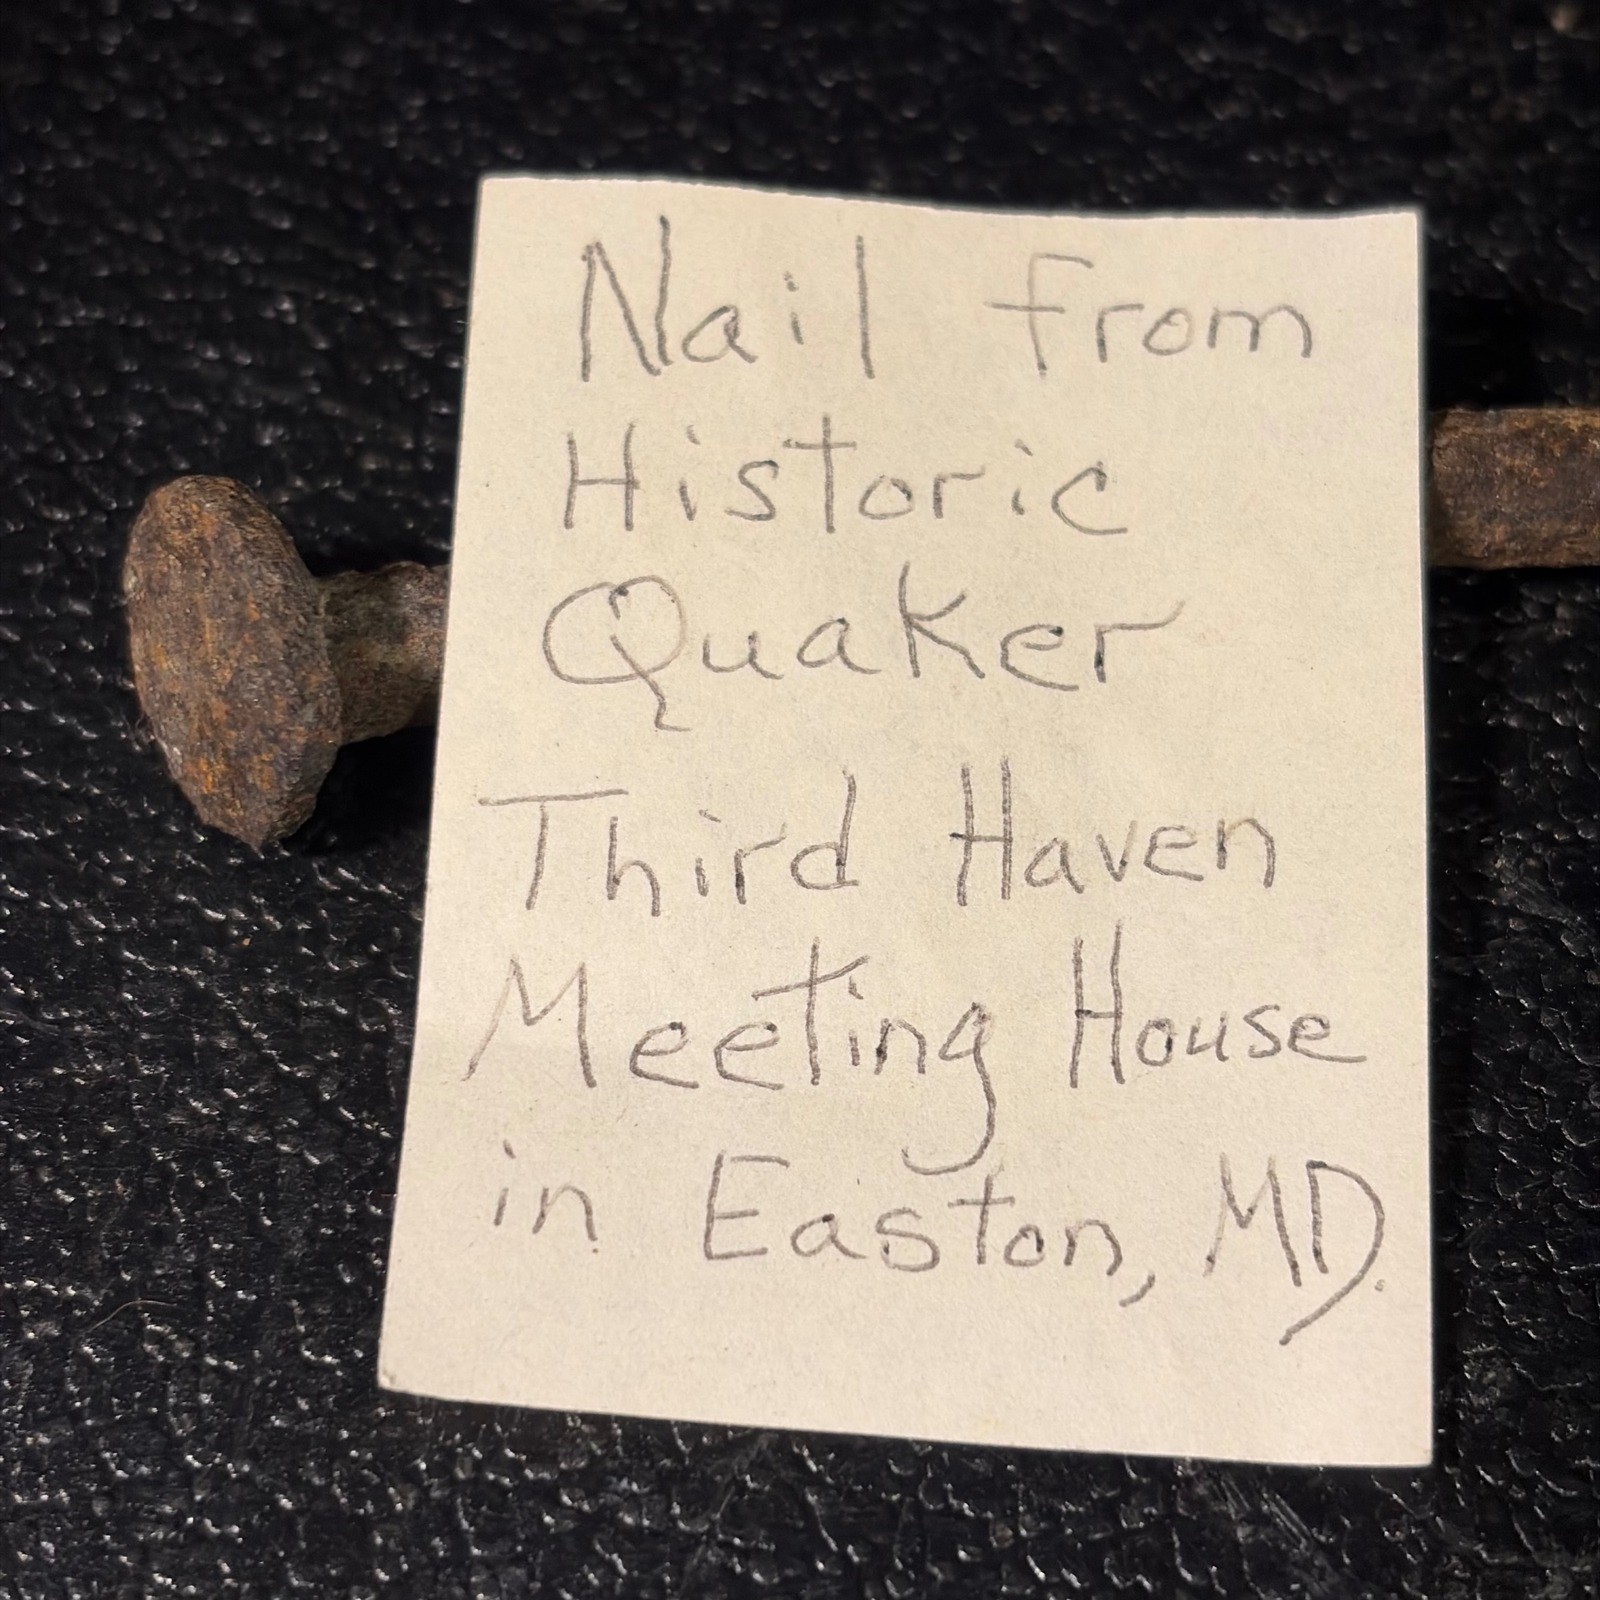 Nail from
Historic
Quaker
Third Haven
Meeting House
in Easton, MD.